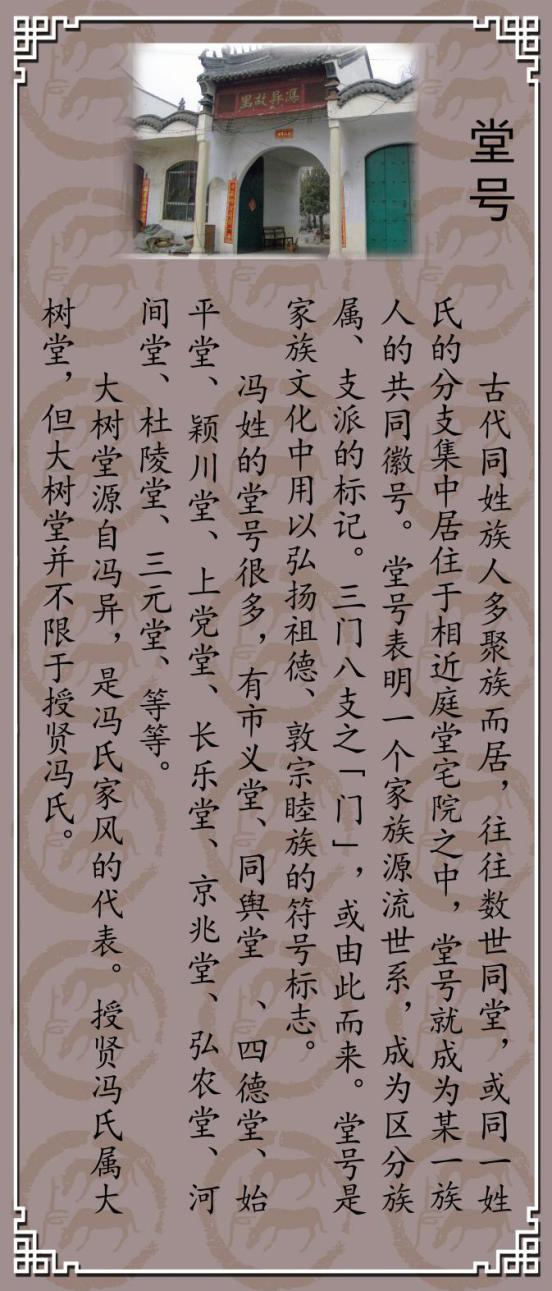 堂号
冯异故里
古代同姓族人多聚族而居，往往数世同堂，或同一姓
氏的分支集中居住于相近庭堂宅院之中，堂号就成为某一族
人的共同徽号。堂号表明一个家族源流世系，成为区分族
属、支派的标记。三门八支之「门」，或由此而来。堂号是
家族文化中用以弘扬祖德、敦宗睦族的符号标志。
冯姓的堂号很多，有市义堂、同舆堂、四德堂、始
平堂、颖川堂、上党堂、长乐堂、京兆堂、弘农堂、河
间堂、杜陵堂、三元堂、等等。
大树堂源自冯异，是冯氏家风的代表。授贤冯氏属大
树堂，但大树堂并不限于授贤冯氏。